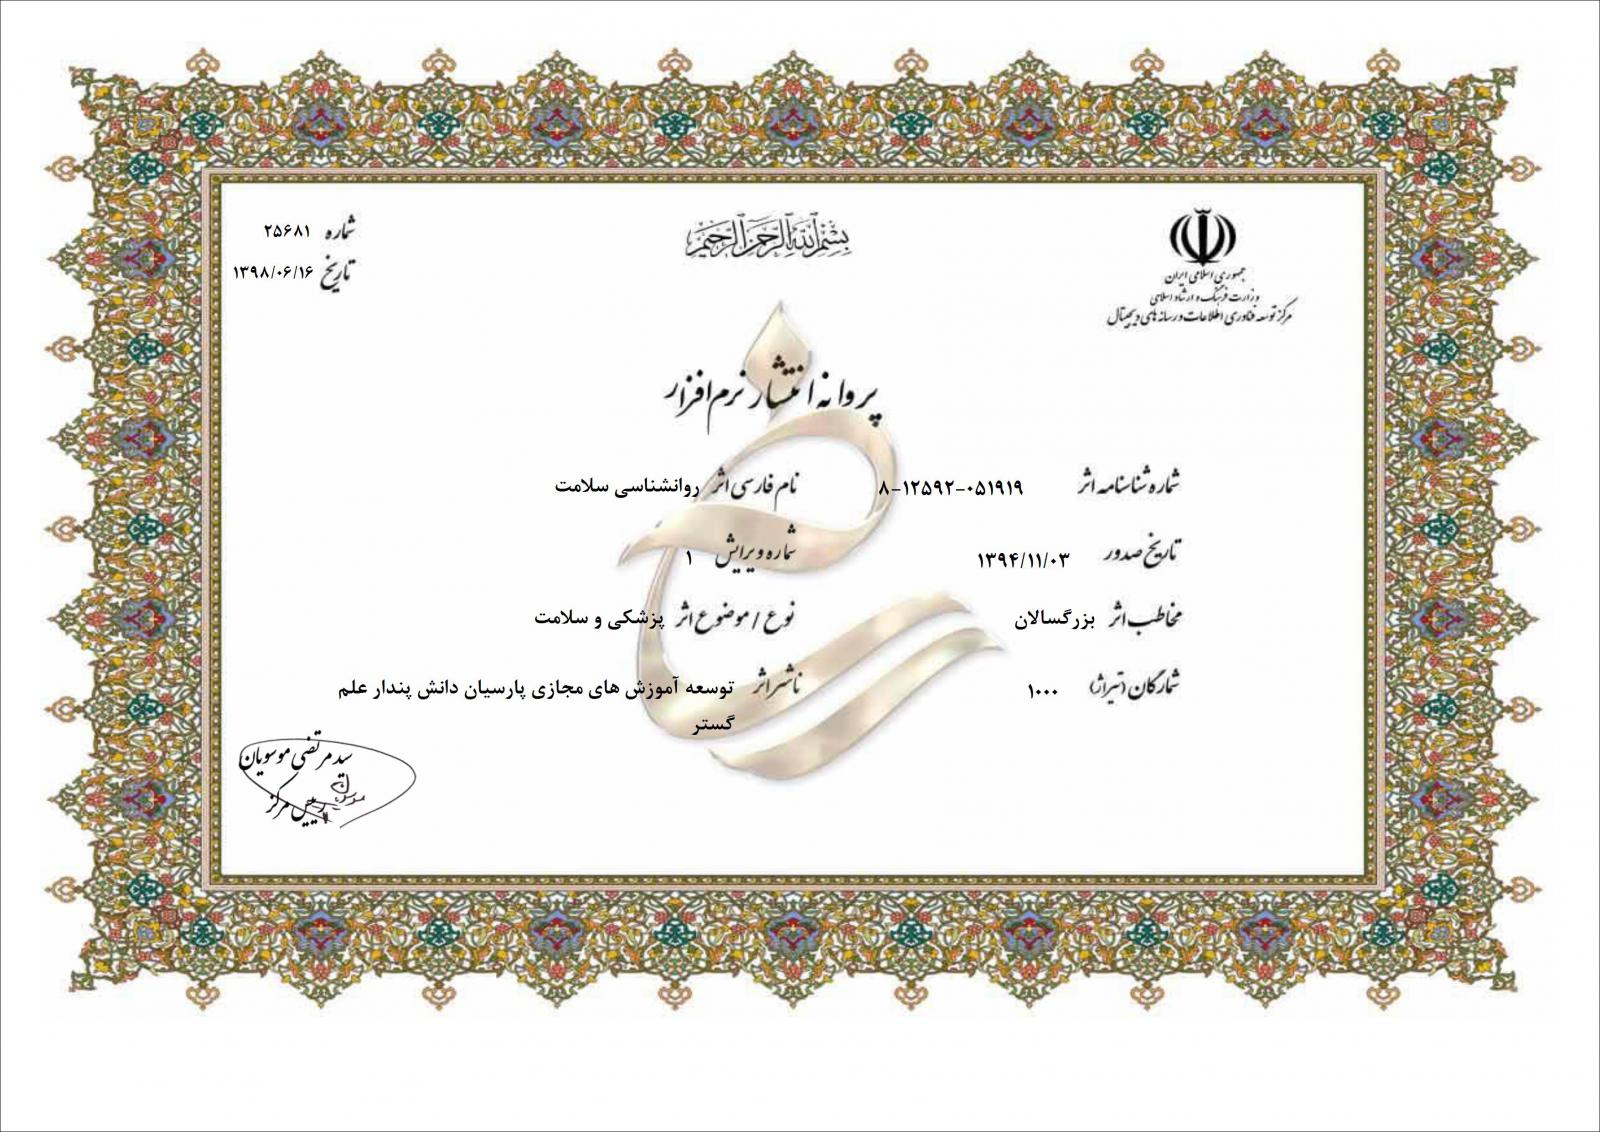 بسم الله الرحمن الرحیم
جمهوری اسلامی ایران
وزارت فرهنگ و ارشاد اسلامی
مرکز توسعه فناوری اطلاعات و رسانه های دیجیتال
شماره ۲۵۶۸۱
تاریخ ۱۳۹۸/۰۶/۱۶
پروانه انتشار نرم افزار
شماره شناسنامه اثر ۸-۱۲۵۹۲-۰۵۱۹۱۹ نام فارسی اثر روانشناسی سلامت
تاریخ صدور ۱۳۹۴/۱۱/۰۳ شماره ویرایش ۱
مخاطب اثر بزرگسالان نوع / موضوع اثر پزشکی و سلامت
شمارگان (تیراژ) ۱۰۰۰ ناشر اثر توسعه آموزش های مجازی پارسیان دانش پندار علم
گستر
سید مرتضی موسویان
رییس مرکز